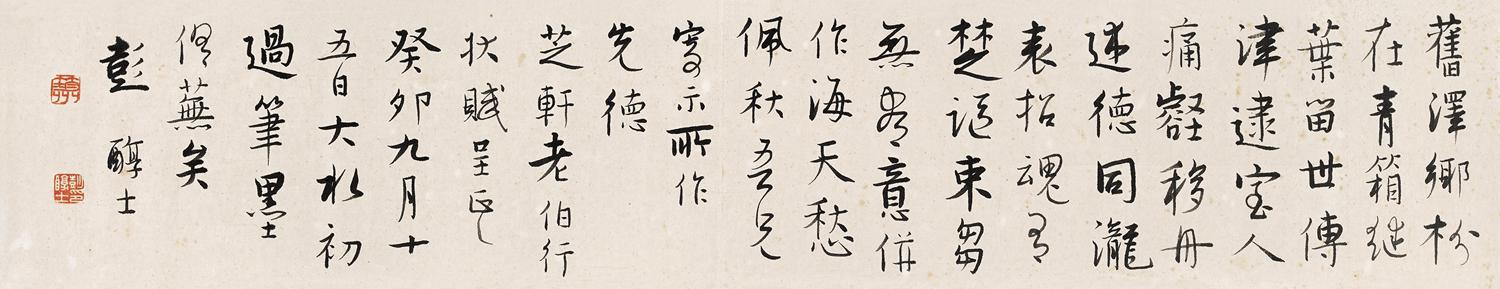 舊澤鄉枌
在青箱繼
葉留世傳
津逮室人
痛壑移舟
述德同瀧
表招魂有
楚謳束芻
無意併
作海天愁
佩秋吾兄
寫示所作
先德
芝軒老伯行
狀賦呈正
癸卯九月十
五日大水初
過筆墨
俱蕪矣
彭醇士